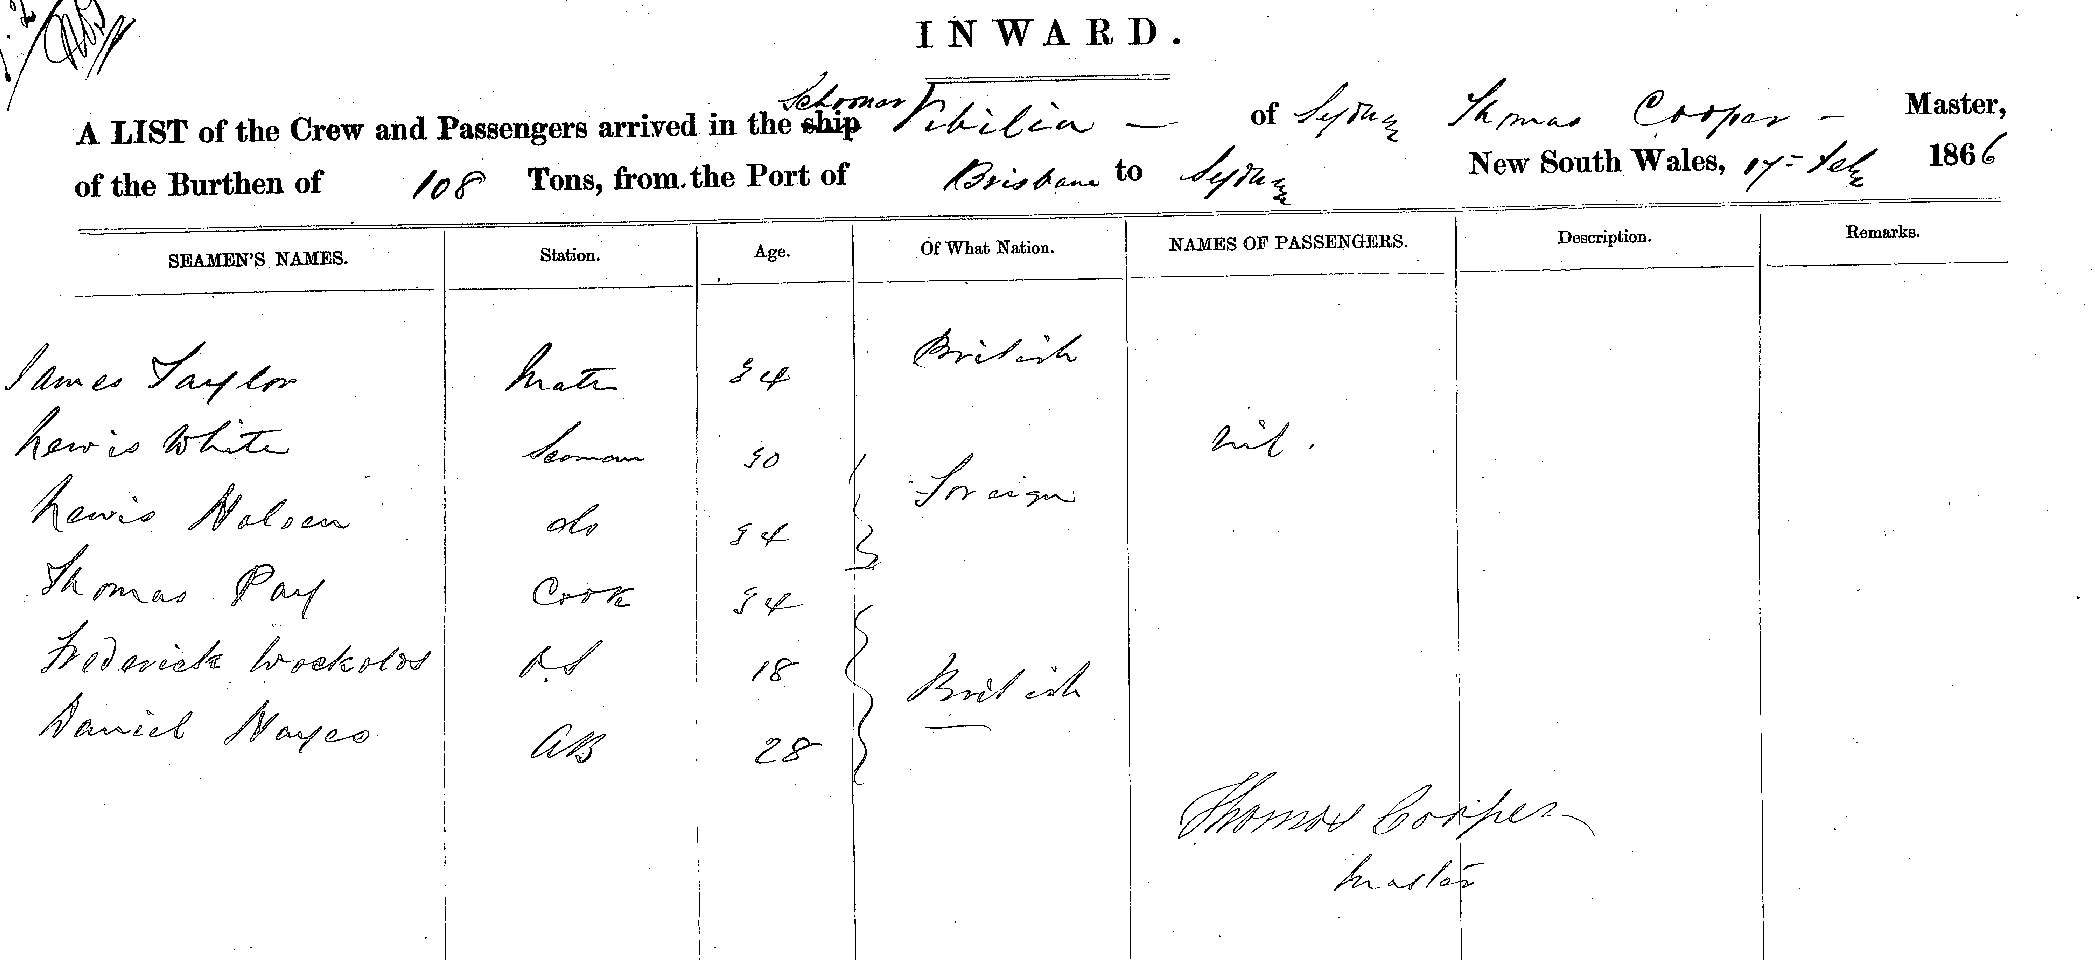 INWARD.
Schooner
A LIST of the Crew and Passengers arrived in the ship Vibilia — of Sydney Thomas Cooper — Master,
of the Burthen of 108 Tons, from the Port of Brisbane to Sydney New South Wales, 17= Feb 1866
SEAMEN'S NAMES. Station. Age. Of What Nation. NAMES OF PASSENGERS. Description. Remarks.
James Taylor Mate 34 British
Lewis White Seaman 30 nil.
Lewis Nolsen do 34 Foreign
Thomas Pay Cook 34
Frederick O.S 18
Daniel Hayes AB 28 British
Thomas Cooper
Master